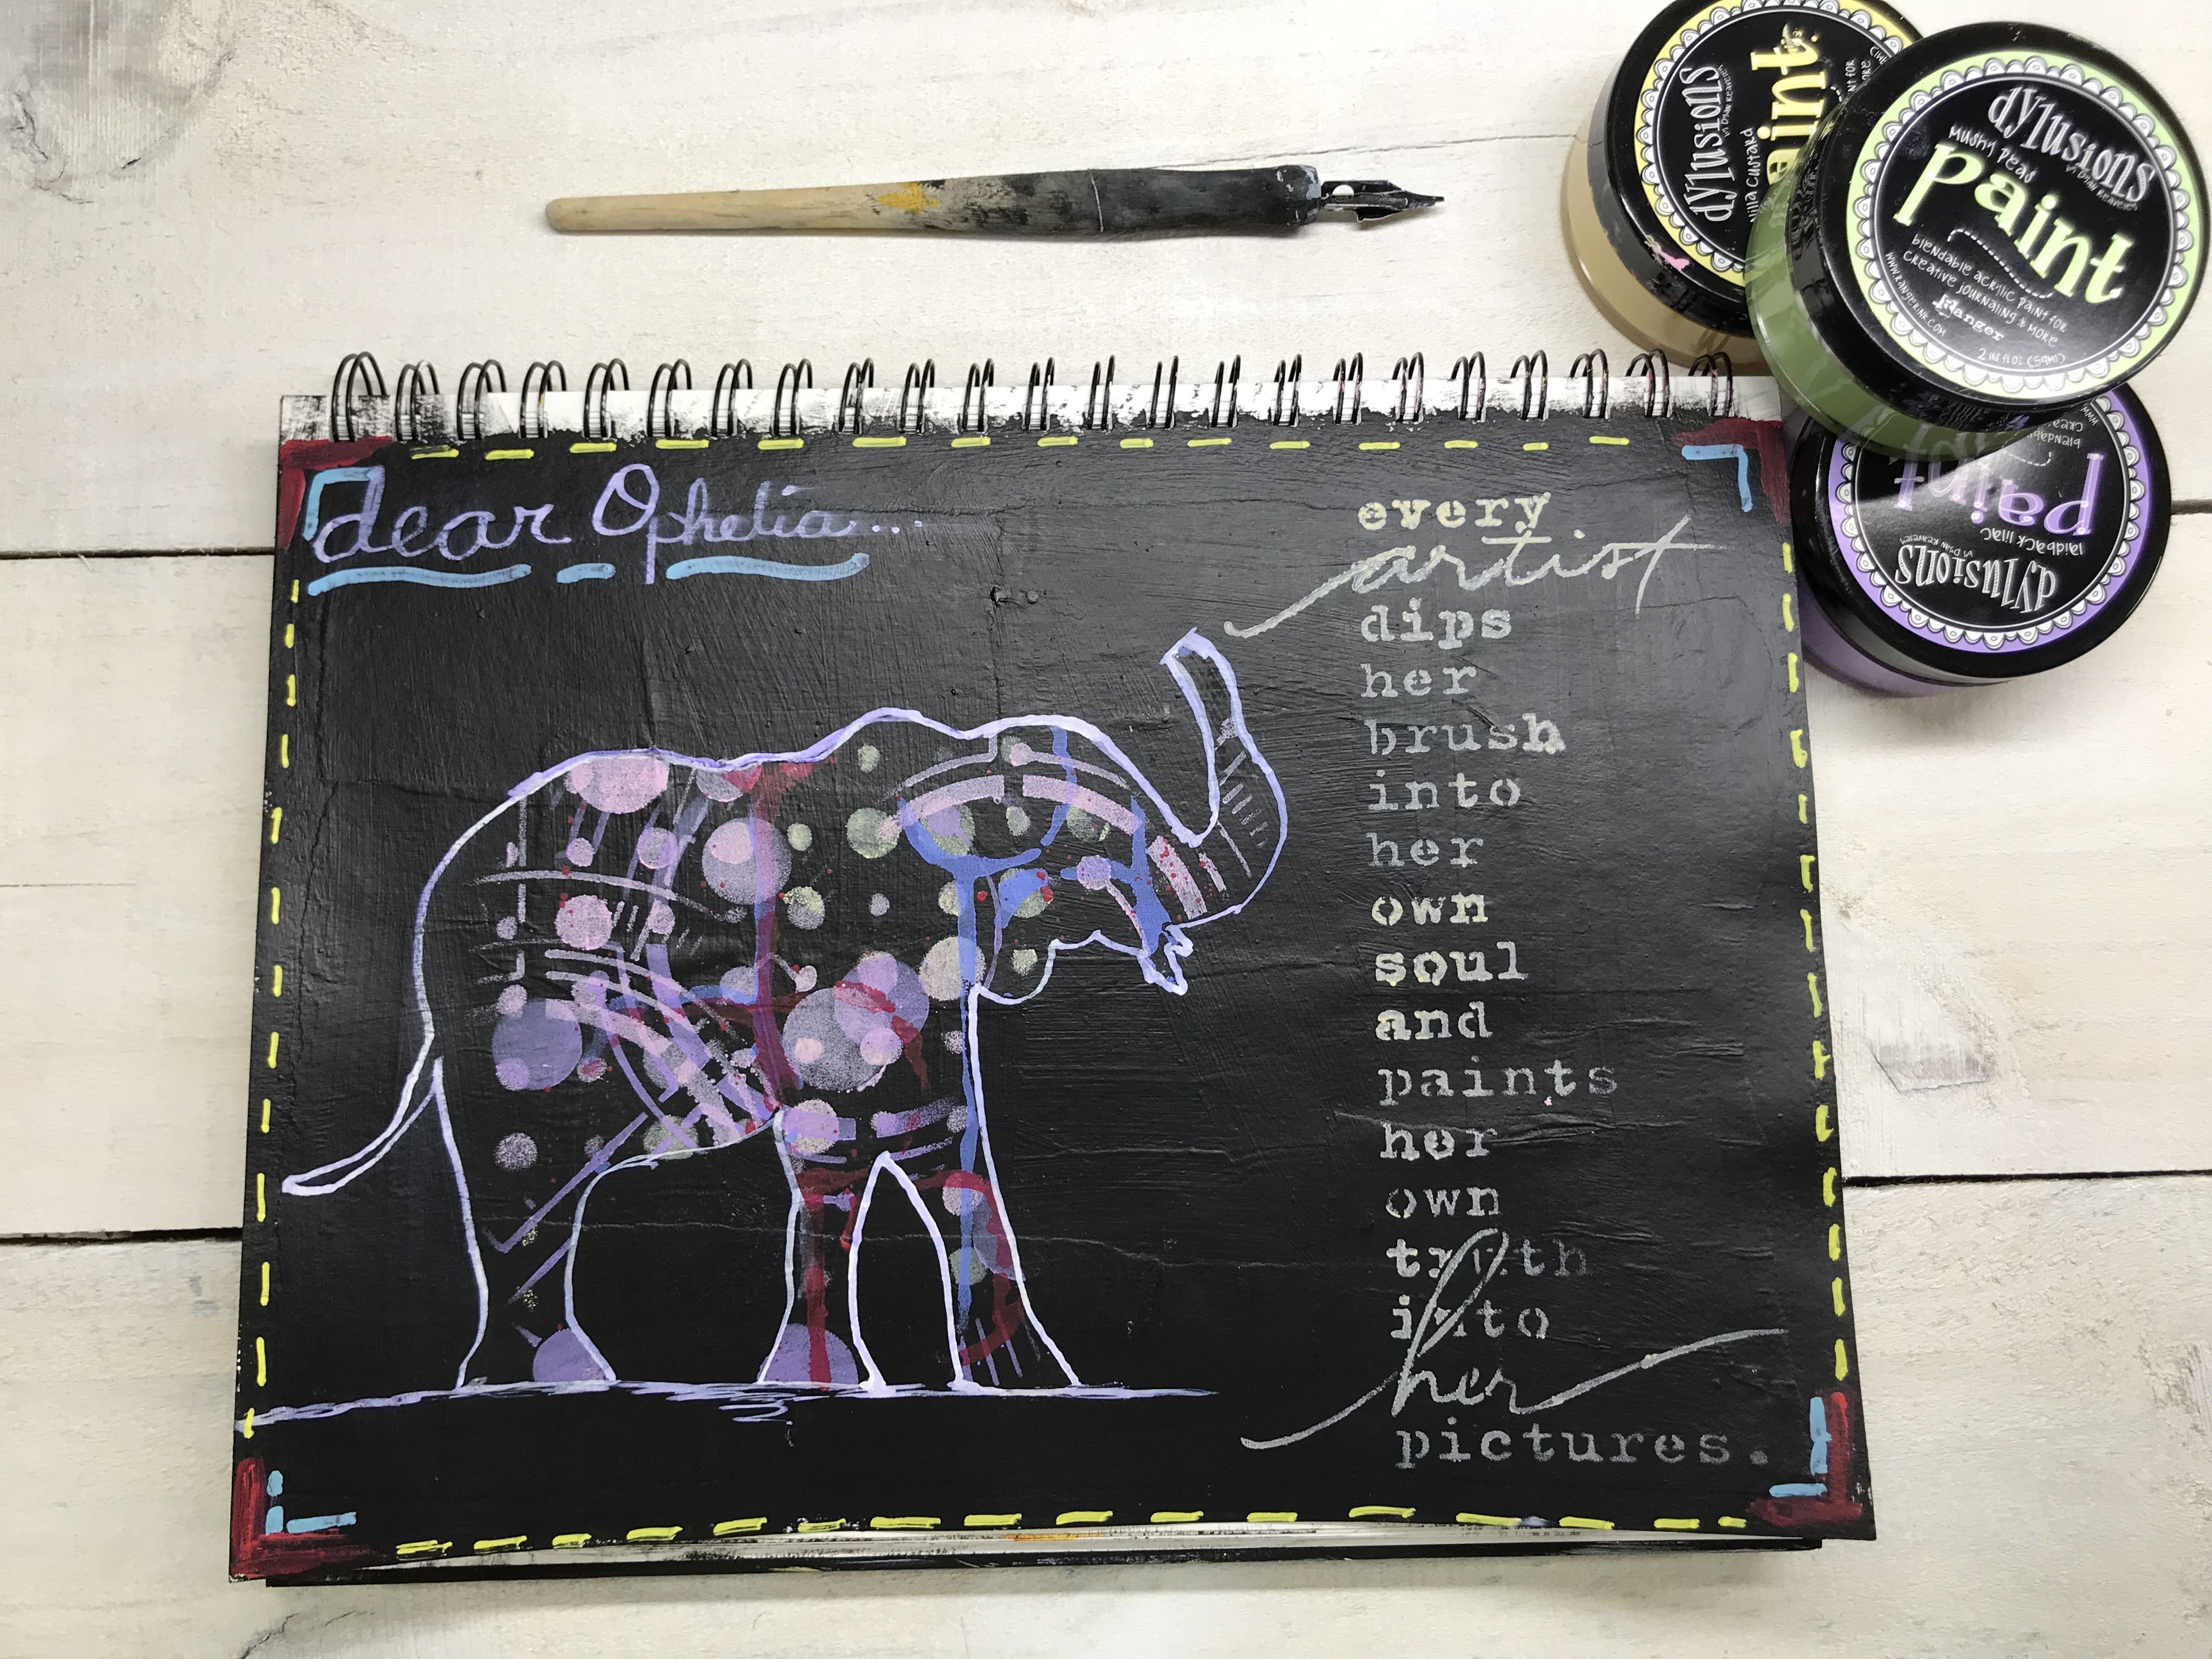 dear Ophelia....
every
artist
dips
her
brush
into
her
own
soul
and
paints
her
own
truth
into
her
pictures.
dylusions
by Dyan Reaveley
illa Custard
aint
dylusions
by Dyan Reaveley
Mushy Peas
paint
blendable acrylic paint for
creative journaling & more
Ranger
www.rangerink.com
2 US fl oz (59ml)
dylusions
by Dyan Reaveley
laidback lilac
paint